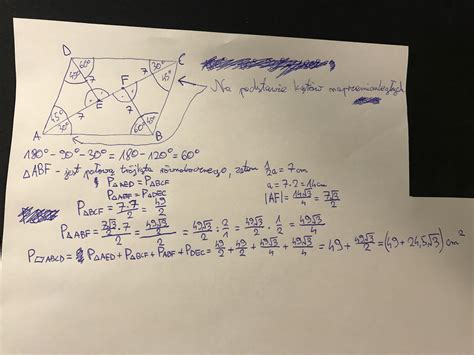 D
60°
45°
C
30°
45°
7
7
F
E
7
7
45°
30°
60°
45°
A
B
Na podstawie kątów naprzemianległych
180°-90°-30°=180-120°=60°
△ABF - jest połową trójkąta równobocznego, zatem ½a=7cm
P△AED=P△BCF
a=7·2=14cm
P△ABF=P△DEC
|AF|=14√3/2=7√3/2
P△BCF=7·7/2=49/2
P△ABF=7√3/2·7/2=49√3/2/2=49√3/2:2/1=49√3/2·1/2=49√3/4
P▱ABCD=P△AED+P△BCF+P△ABF+P△DEC=49/2+49/2+49√3/4+49√3/4=49+49√3/2=(49+24,5√3)cm²